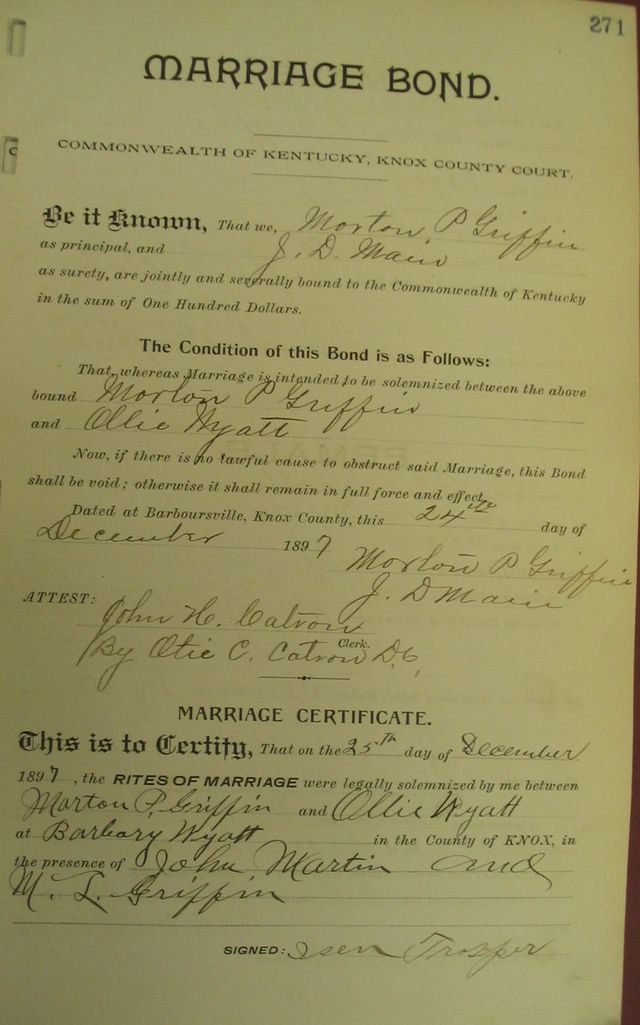 271
MARRIAGE BOND.
COMMONWEALTH OF KENTUCKY, KNOX COUNTY COURT.
Be it Known, That we, Morton P Griffin
as principal, and J. D. Main
as surety, are jointly and severally bound to the Commonwealth of Kentucky
in the sum of One Hundred Dollars.
The Condition of this Bond is as Follows:
That whereas Marriage is intended to be solemnized between the above
bound Morton P Griffin
and Ollie Wyatt
Now, if there is no lawful cause to obstruct said Marriage, this Bond
shall be void; otherwise it shall remain in full force and effect.
Dated at Barboursville, Knox County, this 24th day of
December 1897
Morton P Griffin
J. D Main
ATTEST:
John H. Catron
Clerk.
By Otie C. Catron D.C.
MARRIAGE CERTIFICATE.
This is to Certify, That on the 25th day of December
1897, the RITES OF MARRIAGE were legally solemnized by me between
Morton P. Griffin and Ollie Wyatt
at Barbary Wyatt in the County of KNOX, in
the presence of John Martin and
M. L. Griffin
SIGNED: Trosper